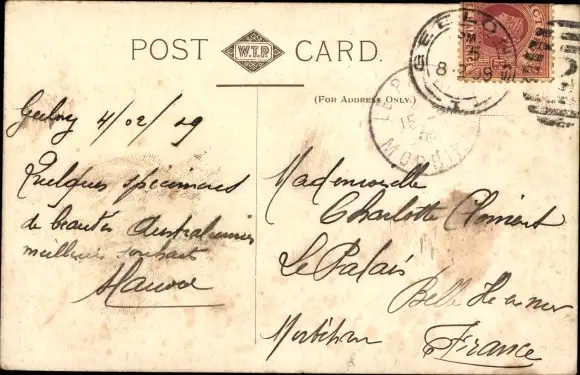 POST W.T.P. CARD.
GEELONG
8-2 09
(FOR ADDRESS ONLY.)
LE P
15
MORBIHAN
Geelong 4/02/09
Quelques spécimens
de beautés Australiennes
meilleurs souhait
Mademoiselle
Charlotte Clément
Le Palais
Belle Ile en mer
Morbihan
France